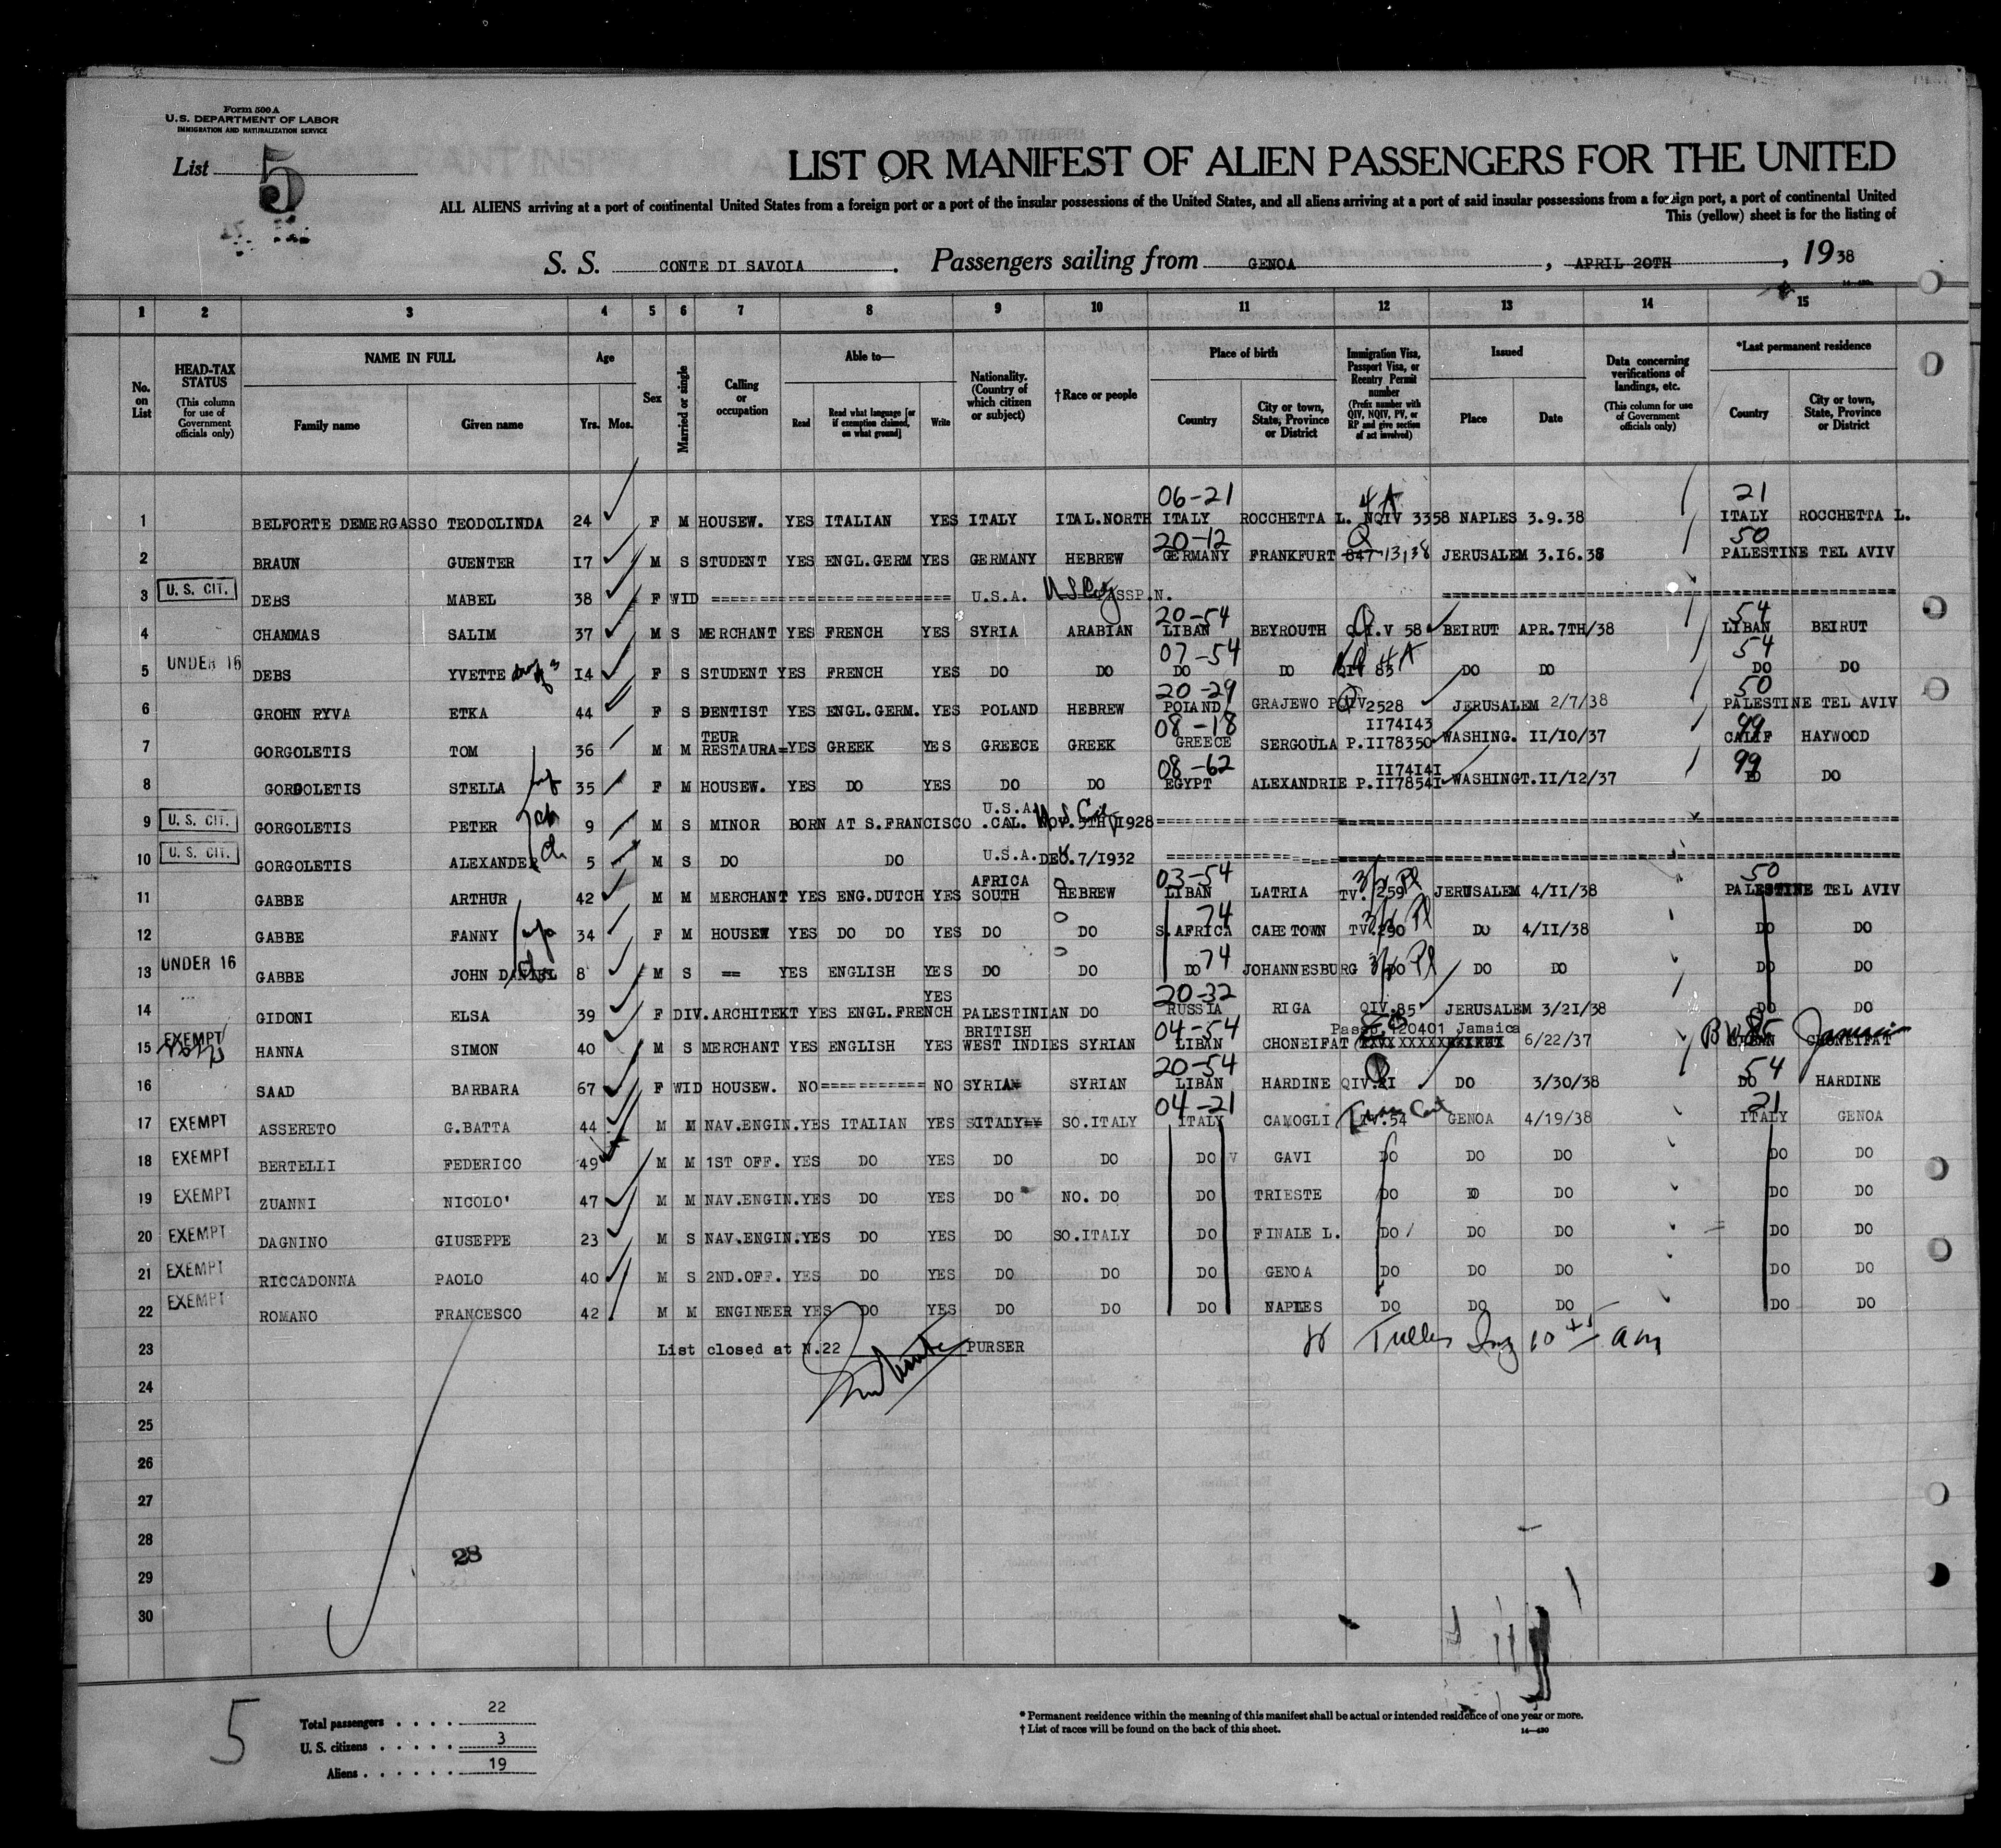 Form 500 A
U.S. DEPARTMENT OF LABOR
IMMIGRATION AND NATURALIZATION SERVICE
List 5
LIST OR MANIFEST OF ALIEN PASSENGERS FOR THE UNITED
ALL ALIENS arriving at a port of continental United States from a foreign port or a port of the insular possessions of the United States, and all aliens arriving at a port of said insular possessions from a foreign port, a port of continental United
This (yellow) sheet is for the listing of
S. S. CONTE DI SAVOIA . Passengers sailing from GENOA , APRIL 20TH , 1938
1 2 3 4 5 6 7 8 9 10 11 12 13 14 15
No. on List
HEAD-TAX STATUS (This column for use of Government officials only)
NAME IN FULL Family name Given name
Age Yrs. Mos.
Sex
Married or single
Calling or occupation
Able to— Read Read what language [or if exemption claimed, on what ground] Write
Nationality. (Country of which citizen or subject)
†Race or people
Place of birth Country City or town, State, Province or District
Immigration Visa, Passport Visa, or Reentry Permit number (Prefix number with QIV, NQIV, PV, or RP and give section of act involved)
Issued Place Date
Data concerning verifications of landings, etc. (This column for use of Government officials only)
*Last permanent residence Country City or town, State, Province or District
06-21 4A 21
1 BELFORTE DEMERGASSO TEODOLINDA 24 F M HOUSEW. YES ITALIAN YES ITALY ITAL.NORTH ITALY ROCCHETTA L. NQIV 3358 NAPLES 3.9.38 ITALY ROCCHETTA L.
20-12 Q 50
2 BRAUN GUENTER 17 M S STUDENT YES ENGL.GERM YES GERMANY HEBREW GERMANY FRANKFURT 847 13,38 JERUSALEM 3.16.38 PALESTINE TEL AVIV
3 U. S. CIT. DEBS MABEL 38 F WID ======================== U.S.A. PASSP.N. ========================
20-54 54
4 CHAMMAS SALIM 37 M S MERCHANT YES FRENCH YES SYRIA ARABIAN LIBAN BEYROUTH Q.I.V 58 BEIRUT APR.7TH/38 LIBAN BEIRUT
07-54 4A 54
5 UNDER 16 DEBS YVETTE 14 F S STUDENT YES FRENCH YES DO DO DO DO QIV 83 DO DO DO DO
20-29 50
6 GROHN RYVA ETKA 44 F S DENTIST YES ENGL.GERM. YES POLAND HEBREW POLAND GRAJEWO 2528 JERUSALEM 2/7/38 PALESTINE TEL AVIV
TEUR 08-18 II74143 99
7 GORGOLETIS TOM 36 M M RESTAURA=YES GREEK YES GREECE GREEK GREECE SERGOULA P.II78350 WASHING. II/10/37 CALIF HAYWOOD
08-62 II74141 99
8 GORDOLETIS STELLA 35 F M HOUSEW. YES DO YES DO DO EGYPT ALEXANDRIE P.II78541 WASHINGT.II/12/37 DO DO
9 U. S. CIT. GORGOLETIS PETER 9 M S MINOR BORN AT S.FRANCISCO .CAL. U.S.A. NOV.5TH 1928 ========================
10 U. S. CIT. GORGOLETIS ALEXANDER 5 M S DO DO U.S.A. DEC.7/1932 ========================
AFRICA 03-54 50
11 GABBE ARTHUR 42 M M MERCHANT YES ENG.DUTCH YES SOUTH HEBREW LIBAN LATRIA TV. 259 JERUSALEM 4/II/38 PALESTINE TEL AVIV
74
12 GABBE FANNY 34 F M HOUSEW YES DO DO YES DO DO S.AFRICA CAPE TOWN TV.290 DO 4/II/38 DO DO
13 UNDER 16 GABBE JOHN DANIEL 8 M S == YES ENGLISH YES DO DO DO 74 JOHANNESBURG DO DO DO DO DO
YES 20-32
14 GIDONI ELSA 39 F DIV. ARCHITEKT YES ENGL.FRENCH PALESTINIAN DO RUSSIA RIGA QIV.85 JERUSALEM 3/21/38 DO DO
BRITISH 04-54 Passp.120401 Jamaica
15 EXEMPT HANNA SIMON 40 M S MERCHANT YES ENGLISH YES WEST INDIES SYRIAN LIBAN CHONEIFAT 6/22/37 CHONEIFAT Jamaica
20-54 54
16 SAAD BARBARA 67 F WID HOUSEW. NO =========== NO SYRIAN SYRIAN LIBAN HARDINE QIV.21 DO 3/30/38 DO HARDINE
04-21 21
17 EXEMPT ASSERETO G.BATTA 44 M M NAV.ENGIN.YES ITALIAN YES ITALY SO.ITALY ITALY CAMOGLI TV.54 GENOA 4/19/38 ITALY GENOA
18 EXEMPT BERTELLI FEDERICO 49 M M 1ST OFF. YES DO YES DO DO DO GAVI DO DO DO DO DO
19 EXEMPT ZUANNI NICOLO' 47 M M NAV.ENGIN.YES DO YES DO NO. DO DO TRIESTE DO DO DO DO DO
20 EXEMPT DAGNINO GIUSEPPE 23 M S NAV.ENGIN.YES DO YES DO SO.ITALY DO FINALE L. DO DO DO DO DO
21 EXEMPT RICCADONNA PAOLO 40 M S 2ND.OFF. YES DO YES DO DO DO GENOA DO DO DO DO DO
22 EXEMPT ROMANO FRANCESCO 42 M M ENGINEER YES DO YES DO DO DO NAPLES DO DO DO DO DO
23 List closed at N.22 PURSER
24
25
26
27
28
29
30
28
5
Total passengers . . . . 22
U. S. citizens . . . . . 3
Aliens . . . . . . 19
* Permanent residence within the meaning of this manifest shall be actual or intended residence of one year or more.
† List of races will be found on the back of this sheet.
14—430